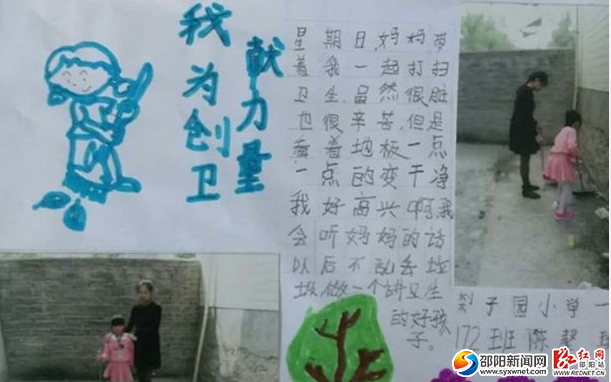 我为创卫
献力量
星期日，妈妈带
着我一起打扫
卫生，虽然很脏
也很辛苦，但是
看着地板一点
一点的变干净
我好高兴啊，我
会听妈妈的话
以后不乱丢垃
圾，做一个讲卫生
的好孩
子。
梨子园小学一
172班陈
邵阳新闻网
www.syxwnet.com
红网
邵阳站
WWW.REDNET.CN